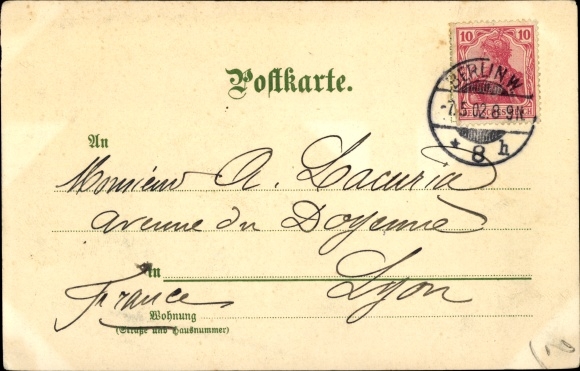 10 10
Postkarte.
BERLIN.W.
-7.5.02.8-9N.
* 8 h
An
Monsieur A. Lacuria
avenue du Doyenné
in
Lyon
France
Wohnung
(Straße und Hausnummer)